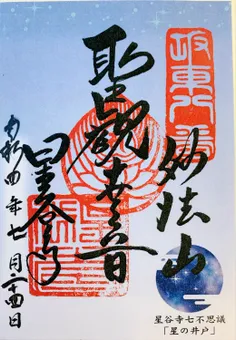 坂東八番
妙法山
聖観世音
星谷寺
令和四年七月二十四日
星谷寺七不思議
「星の井戸」